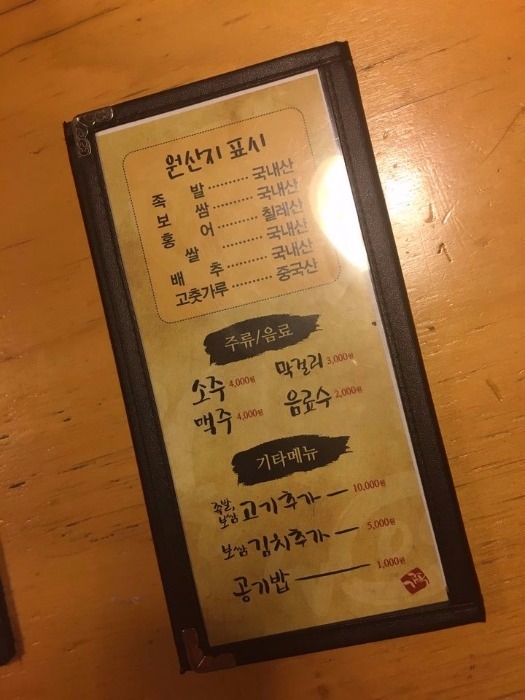 원산지 표시
족 발 ·········· 국내산
보 쌈 ·········· 국내산
홍 어 ·········· 칠레산
쌀 ·········· 국내산
배 추 ·········· 국내산
고춧가루 ·········· 중국산
주류/음료
소주 4,000원 막걸리 3,000원
맥주 4,000원 음료수 2,000원
기타메뉴
족발, 보쌈 고기추가 — 10,000원
보쌈 김치추가 — 5,000원
공기밥 — 1,000원